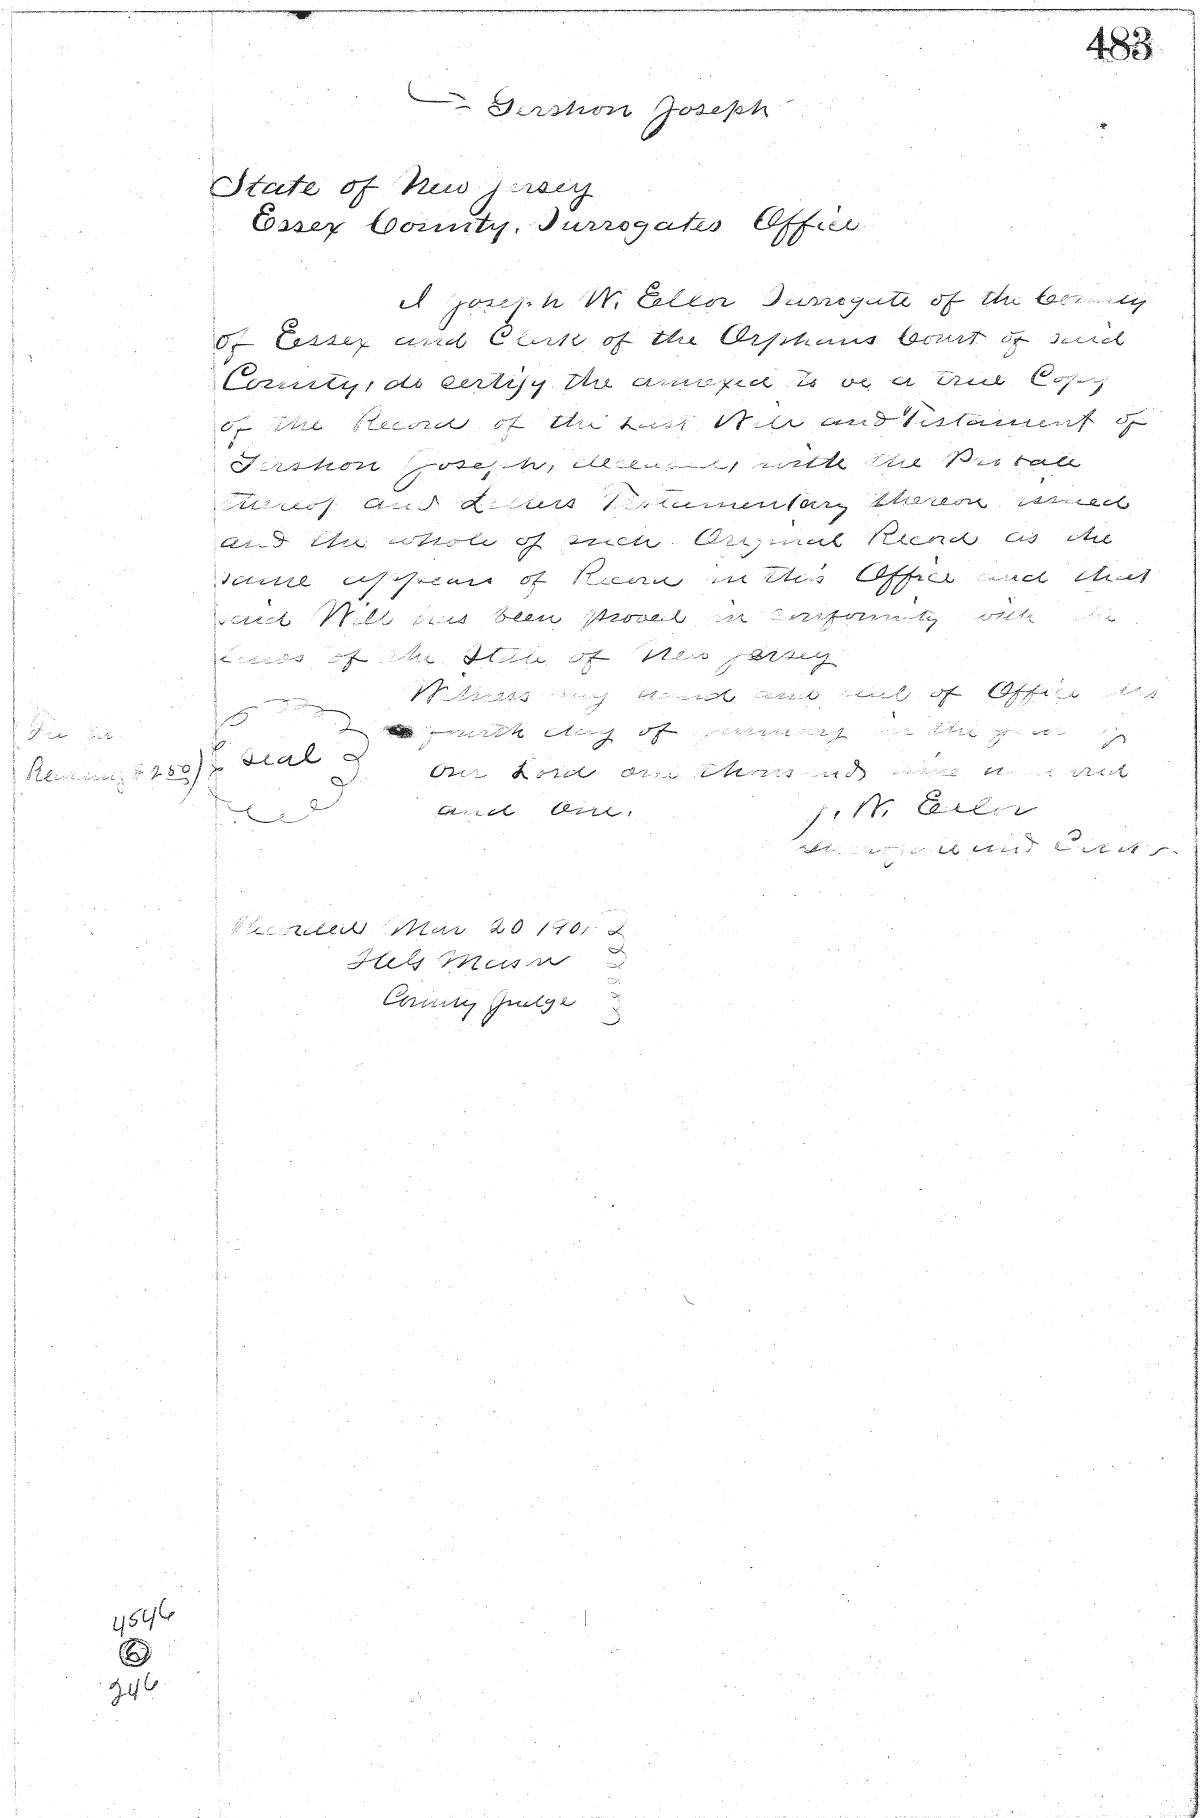 483
Gershon Joseph
State of New Jersey
Essex County, Surrogates Office
I Joseph W. Ellor Surrogate of the County
of Essex and Clerk of the Orphans Court of said
County, do certify the annexed to be a true Copy
of the Record of the Last Will and Testament of
Gershon Joseph, deceased, with the Probate
thereof and Letters Testamentary thereon issued
and the whole of such Original Record as the
same appears of Record in this Office and that
said Will has been proved in conformity with the
Laws of the State of New Jersey
Witness my hand and seal of Office this
fourth day of January in the year of
our Lord one thousand nine hundred
and one.
seal
Fee for
Recording $2.50
J. W. Ellor
Surrogate and Clerk
Recorded Mar 20 1901
County Judge
4546
6
246